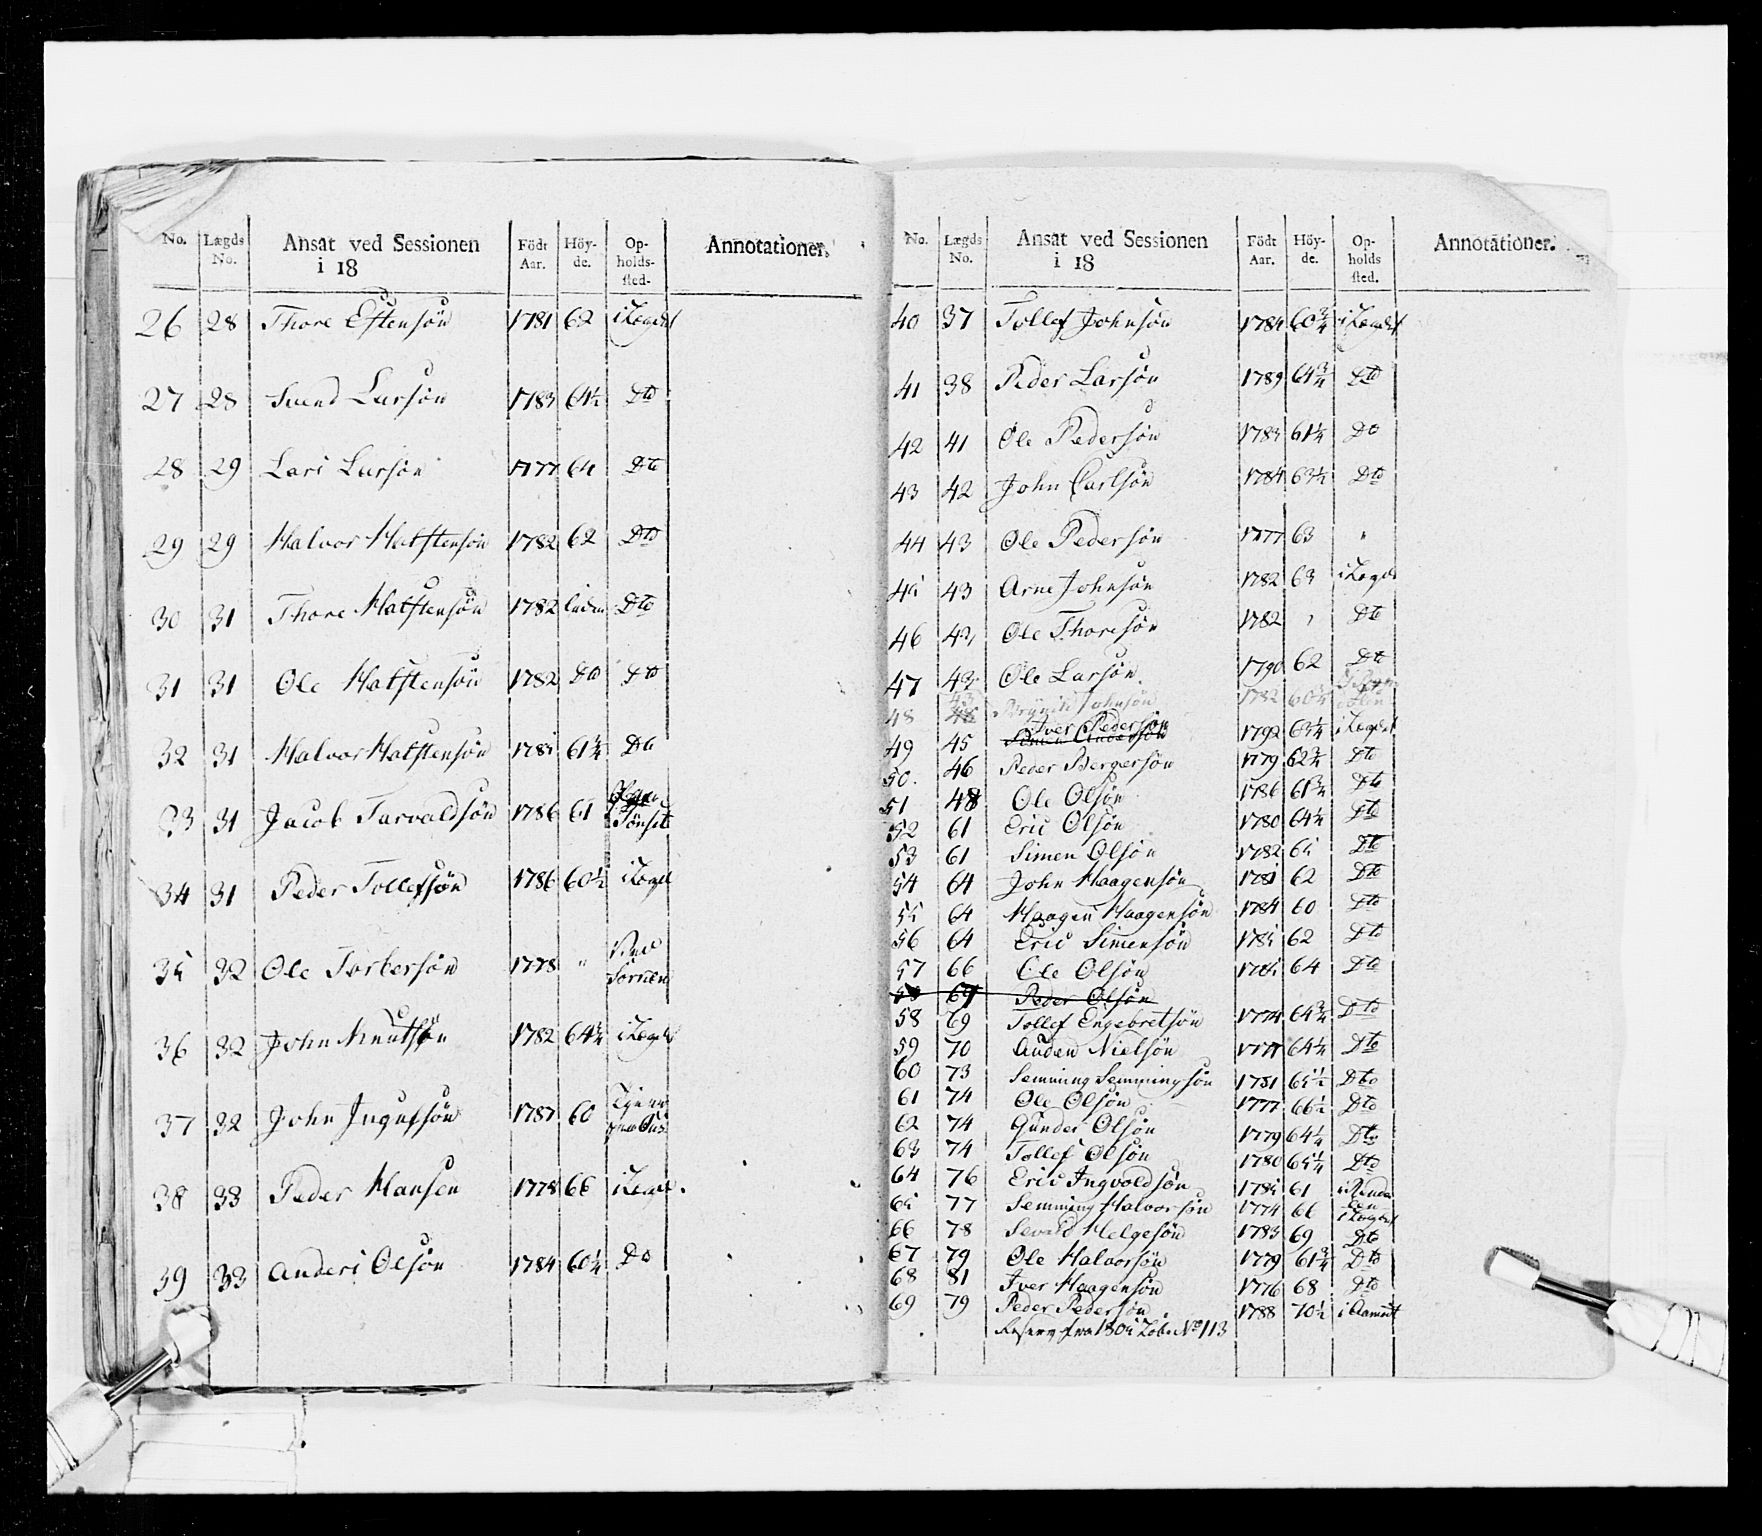 No. Lægds No. Ansat ved Sessionen i 18 Födt Aar. Höyde. Opholdssted. Annotationer.
26 28 Thore Estensön 1781 62 i Lægdet
27 28 Svend Larsön 1783 64½ Dto
28 29 Lars Larsön 1777 64 Dto
29 29 Halvor Halstensön 1782 62 Dto
30 31 Thore Halstensön 1782 Dto
31 31 Ole Halstensön 1782 Do Dto
32 31 Halvor Halstensön 1785 61¼ Dto
33 31 Jacob Tarvaldsön 1786 61 Tönset
34 31 Peder Tollefsön 1786 60½ i Lægd
35 32 Ole Torbersön 1778 "
36 32 John Knutsön 1782 64¼ i Lægd
37 32 John Ingufsön 1787 60
38 33 Peder Hansen 1778 66 i Lægd
39 33 Anders Olsön 1784 60¼ Do
No. Lægds No. Ansat ved Sessionen i 18 Födt Aar. Höyde. Opholds sted. Annotationer.
40 37 Tollef Johnsön 1784 60¾ i Lægdet
41 38 Peder Larsön 1789 64¾ Dto
42 41 Ole Pedersön 1783 61¼ Do
43 42 John Carlsön 1784 63½ Dto
44 43 Ole Pedersön 1777 63 "
45 43 Arne Johnsön 1782 63 i Lægdet
46 43 Ole Thoresön 1782 " Dto
47 43 Ole Larsön 1790 62 Dto
48 43 Johnsön 1782
Iver Pedersön
49 45 Simen Andersön 1792 63¼ i Lægdet
50. 46 Peder Bergersön 1779 62¾ Dto
51 48 Ole Olsön 1786 61¾ Dto
52 61 Eric Olsön 1780 64½ Dto
53 61 Simen Olsön 1782 65 Dto
54 64 John Haagensön 1781 62 Dto
55 64 Haagen Haagensön 1784 60 Dto
56 64 Eric Simensön 1785 62 Dto
57 66 Ole Olsön 1785 64 Dto
58 69 Peder Olsön
58 69 Tollef Engebretsön 1774 64¾ Dto
59 70 Auden Nielsön 1777 64¼ Dto
60 73 Semming Semmingsön 1781 65½ Dto
61 74 Ole Olsön 1777 66½ Dto
62 74 Gunder Olsön 1779 64¼ Dto
63 74 Tollef Olsön 1780 65¼ Dto
64 76 Eric Ingvoldsön 1785 61 i Rendalen
65 77 Semming Halvorsön 1774 66 i Lægdet
66 78 Sevald Helgesön 1783 69 Dto
67 79 Ole Halvorsön 1779 61¾ Dto
68 81 Iver Haagensön 1776 68 Dto
69 79 Peder Pedersön 1788 70½ i Aamot
Reserv fra 1805 Löb. No 113